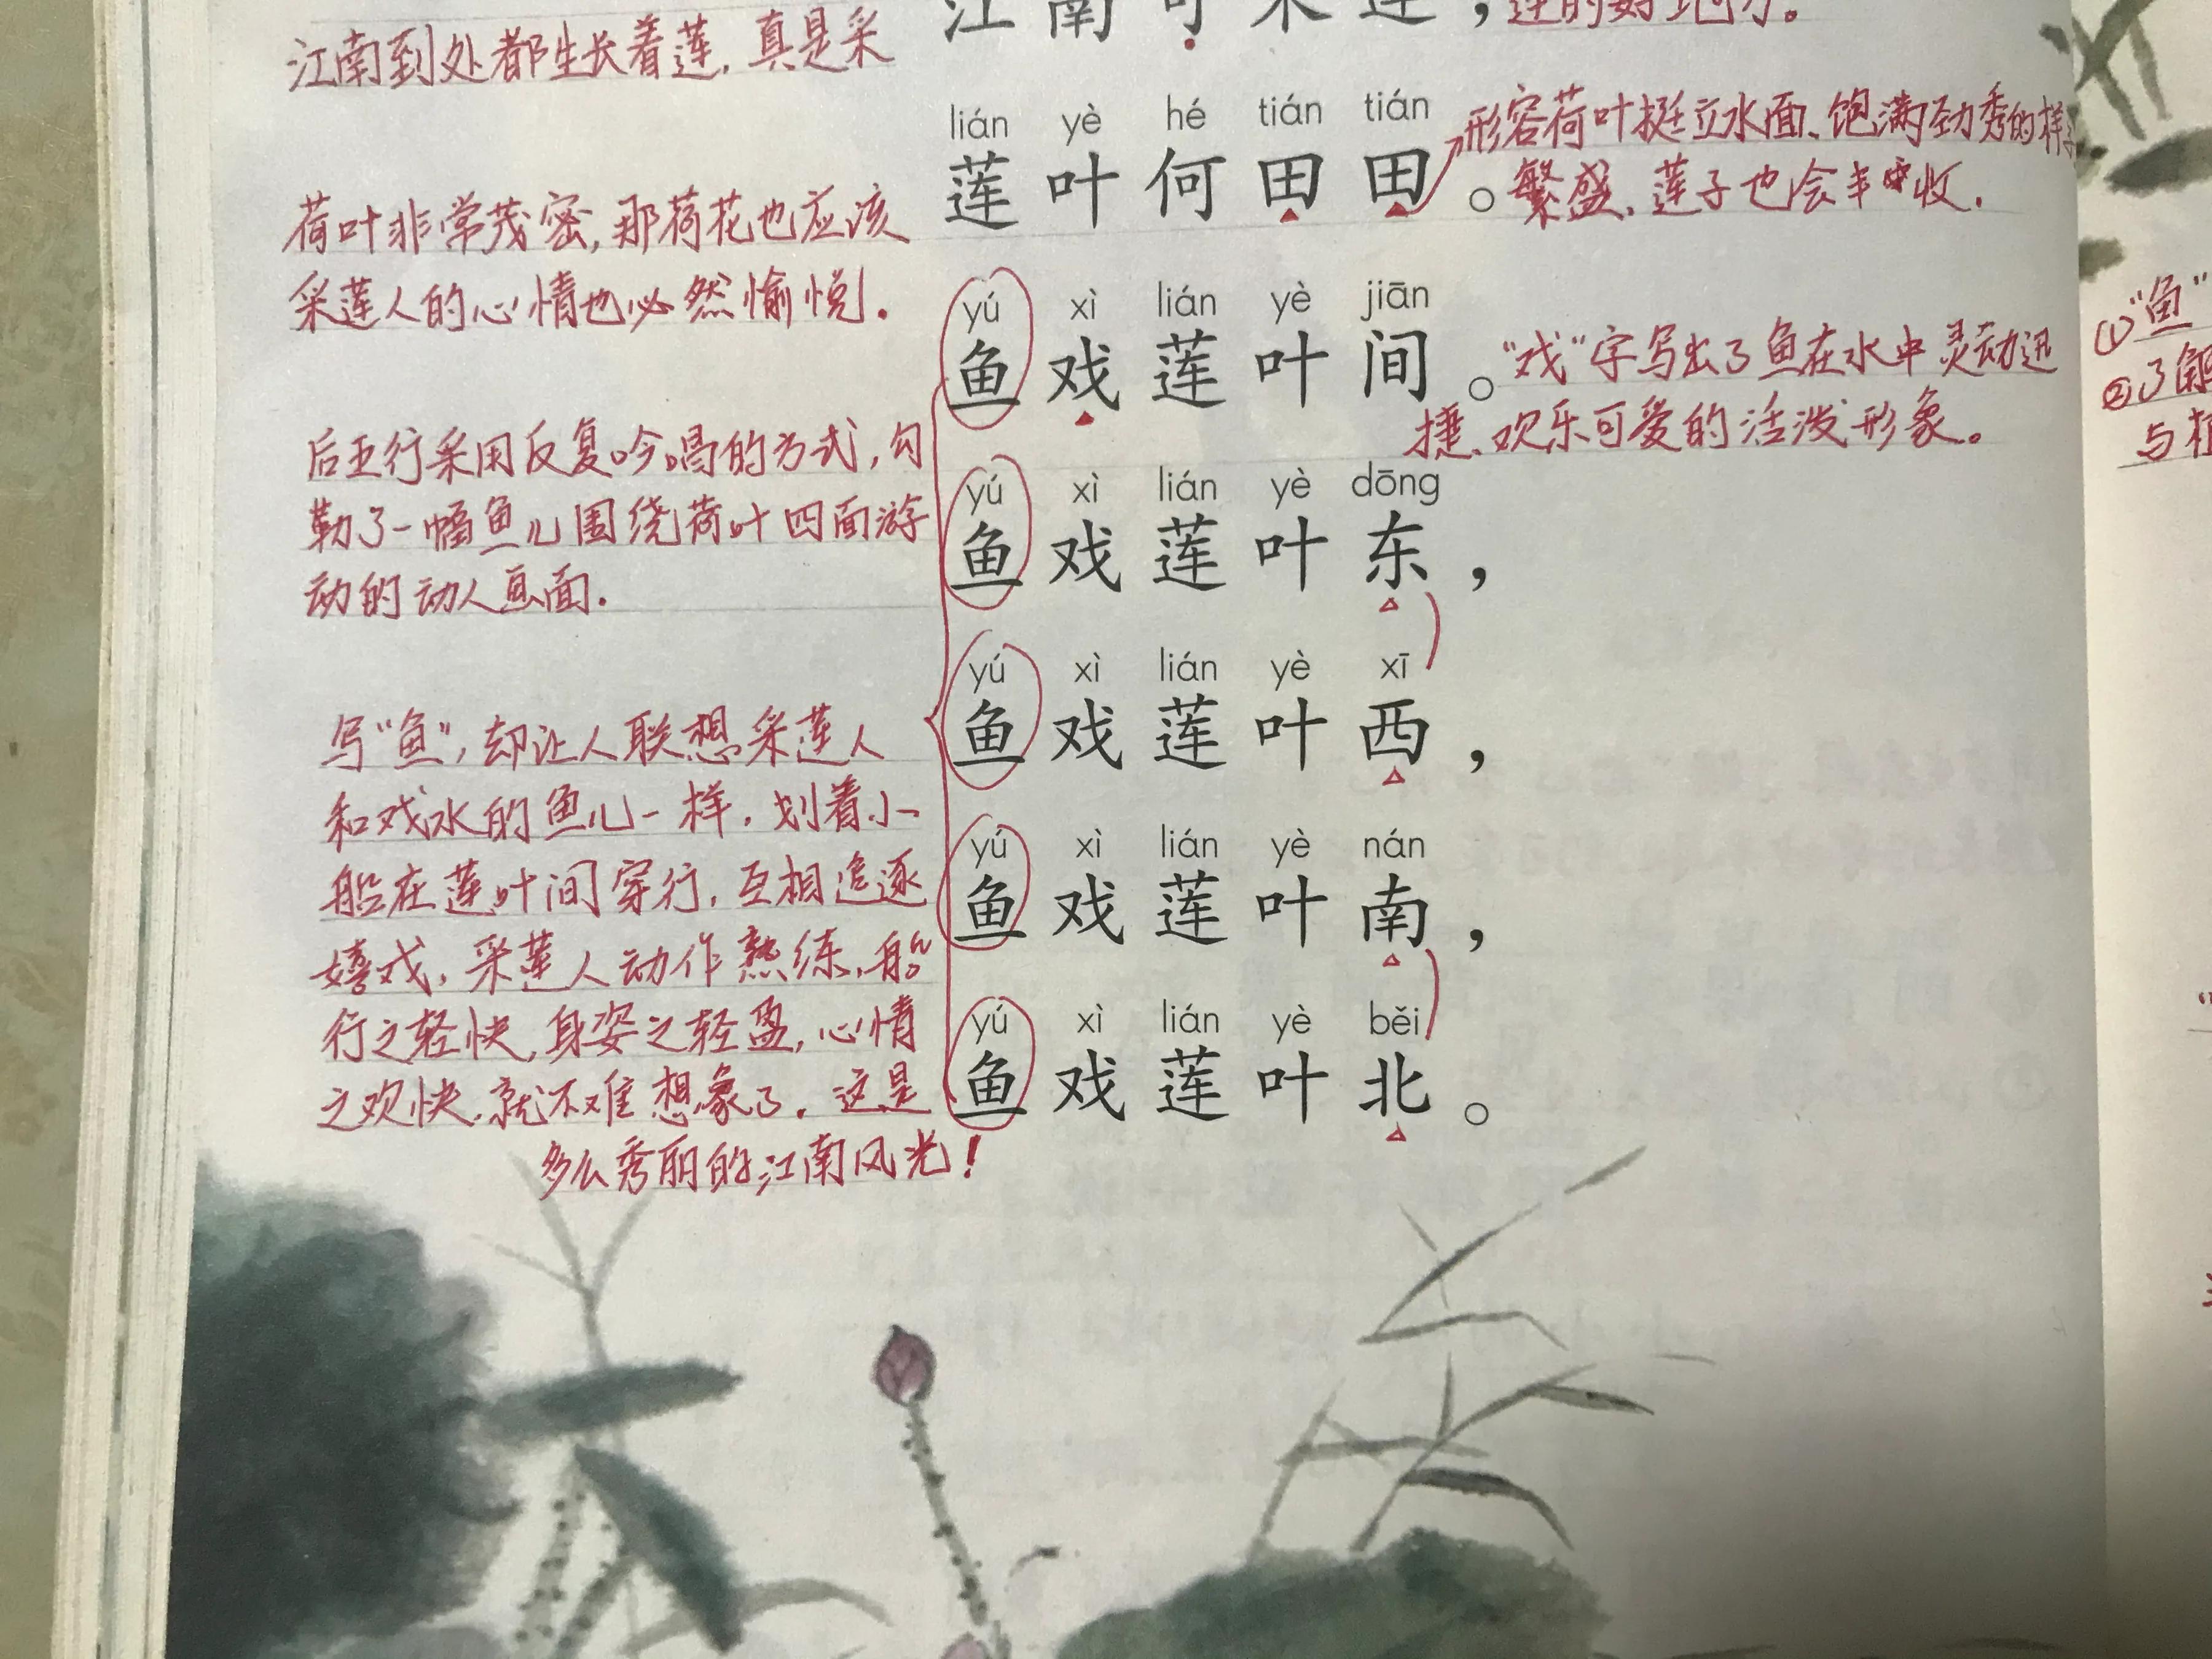 江南可采莲，莲的好地方。
江南到处都生长着莲，真是采
lián yè hé tián tián
莲叶何田田。
形容荷叶挺立水面、饱满劲秀的样子
荷叶非常茂密，那荷花也应该繁盛，莲子也会丰收．
采莲人的心情也必然愉悦．
yú xì lián yè jiān
鱼戏莲叶间。
“戏”字写出了鱼在水中灵动迅
捷、欢乐可爱的活泼形象。
后五行采用反复吟唱的方式，勾
勒了一幅鱼儿围绕荷叶四面游
动的动人画面．
yú xì lián yè dōng
鱼戏莲叶东，
yú xì lián yè xī
鱼戏莲叶西，
yú xì lián yè nán
鱼戏莲叶南，
yú xì lián yè běi
鱼戏莲叶北。
写“鱼”，却让人联想采莲人
和戏水的鱼儿一样，划着小
船在莲叶间穿行，互相追逐
嬉戏，采莲人动作熟练，船
行之轻快，身姿之轻盈，心情
之欢快，就不难想象了．这是
多么秀丽的江南风光！
①“鱼”
②了解
与植